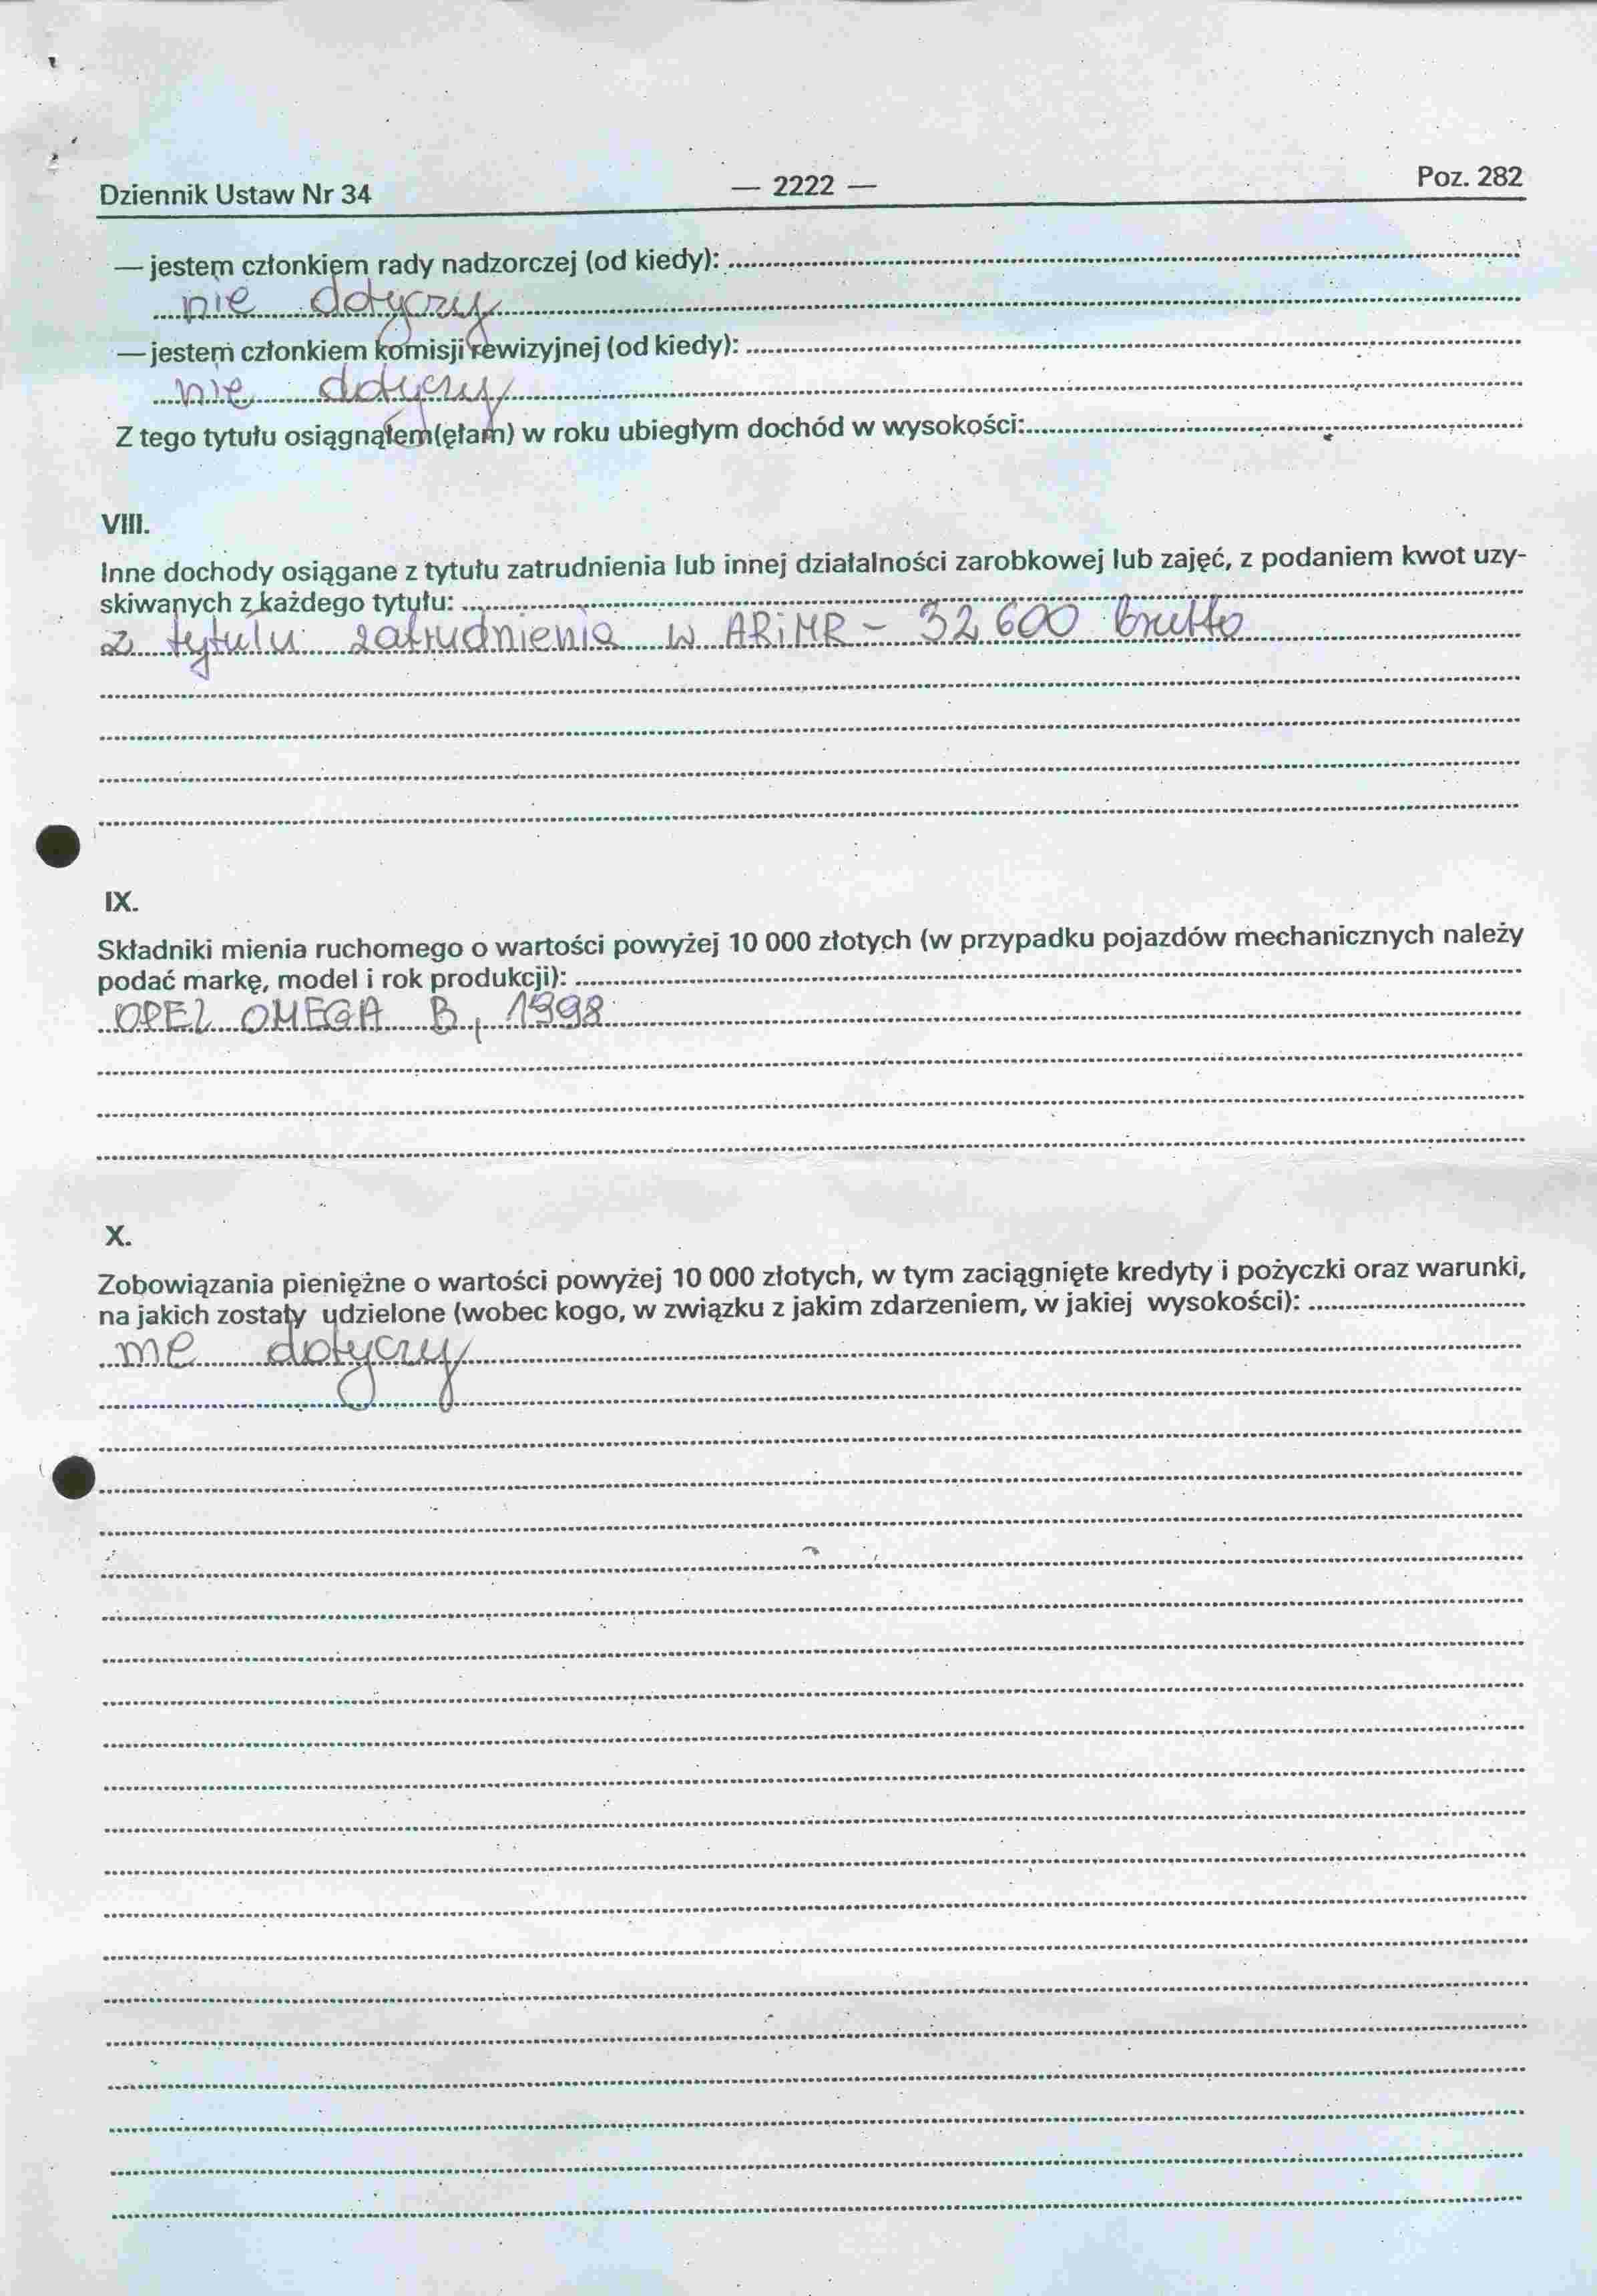 Dziennik Ustaw Nr 34 — 2222 — Poz. 282
— jestem członkiem rady nadzorczej (od kiedy):
nie dotyczy
— jestem członkiem komisji rewizyjnej (od kiedy):
nie dotyczy
Z tego tytułu osiągnąłem(ęłam) w roku ubiegłym dochód w wysokości:
VIII.
Inne dochody osiągane z tytułu zatrudnienia lub innej działalności zarobkowej lub zajęć, z podaniem kwot uzy-
skiwanych z każdego tytułu:
z tytułu zatrudnienia w ARiMR – 32 600 brutto
IX.
Składniki mienia ruchomego o wartości powyżej 10 000 złotych (w przypadku pojazdów mechanicznych należy
podać markę, model i rok produkcji):
OPEL OMEGA B, 1998
X.
Zobowiązania pieniężne o wartości powyżej 10 000 złotych, w tym zaciągnięte kredyty i pożyczki oraz warunki,
na jakich zostały udzielone (wobec kogo, w związku z jakim zdarzeniem, w jakiej wysokości):
nie dotyczy